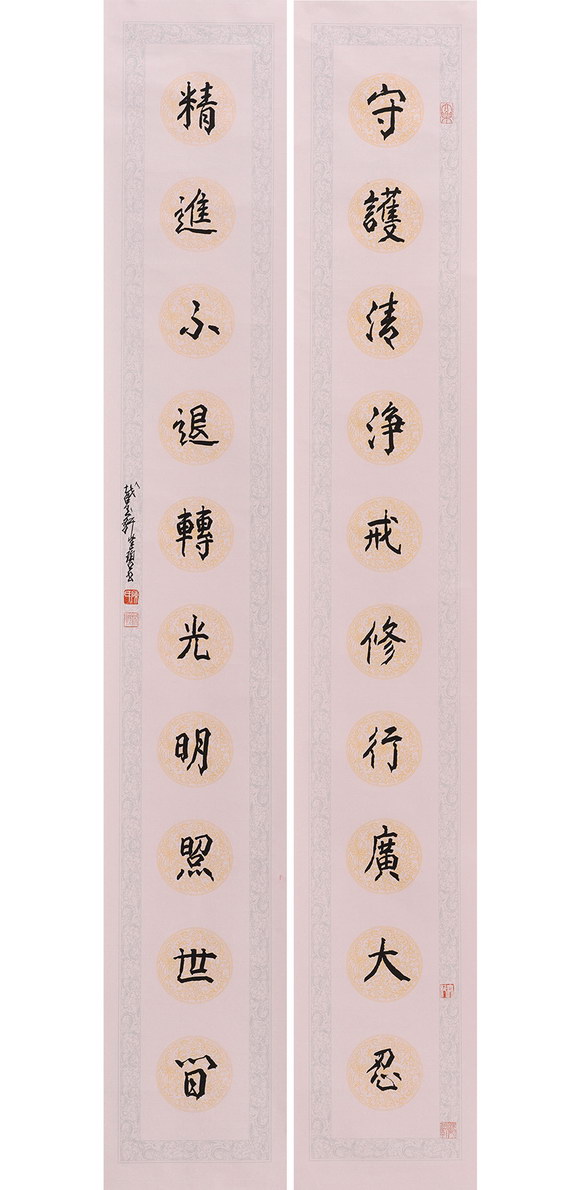 守護清淨戒修行廣大忍
精進不退轉光明照世間